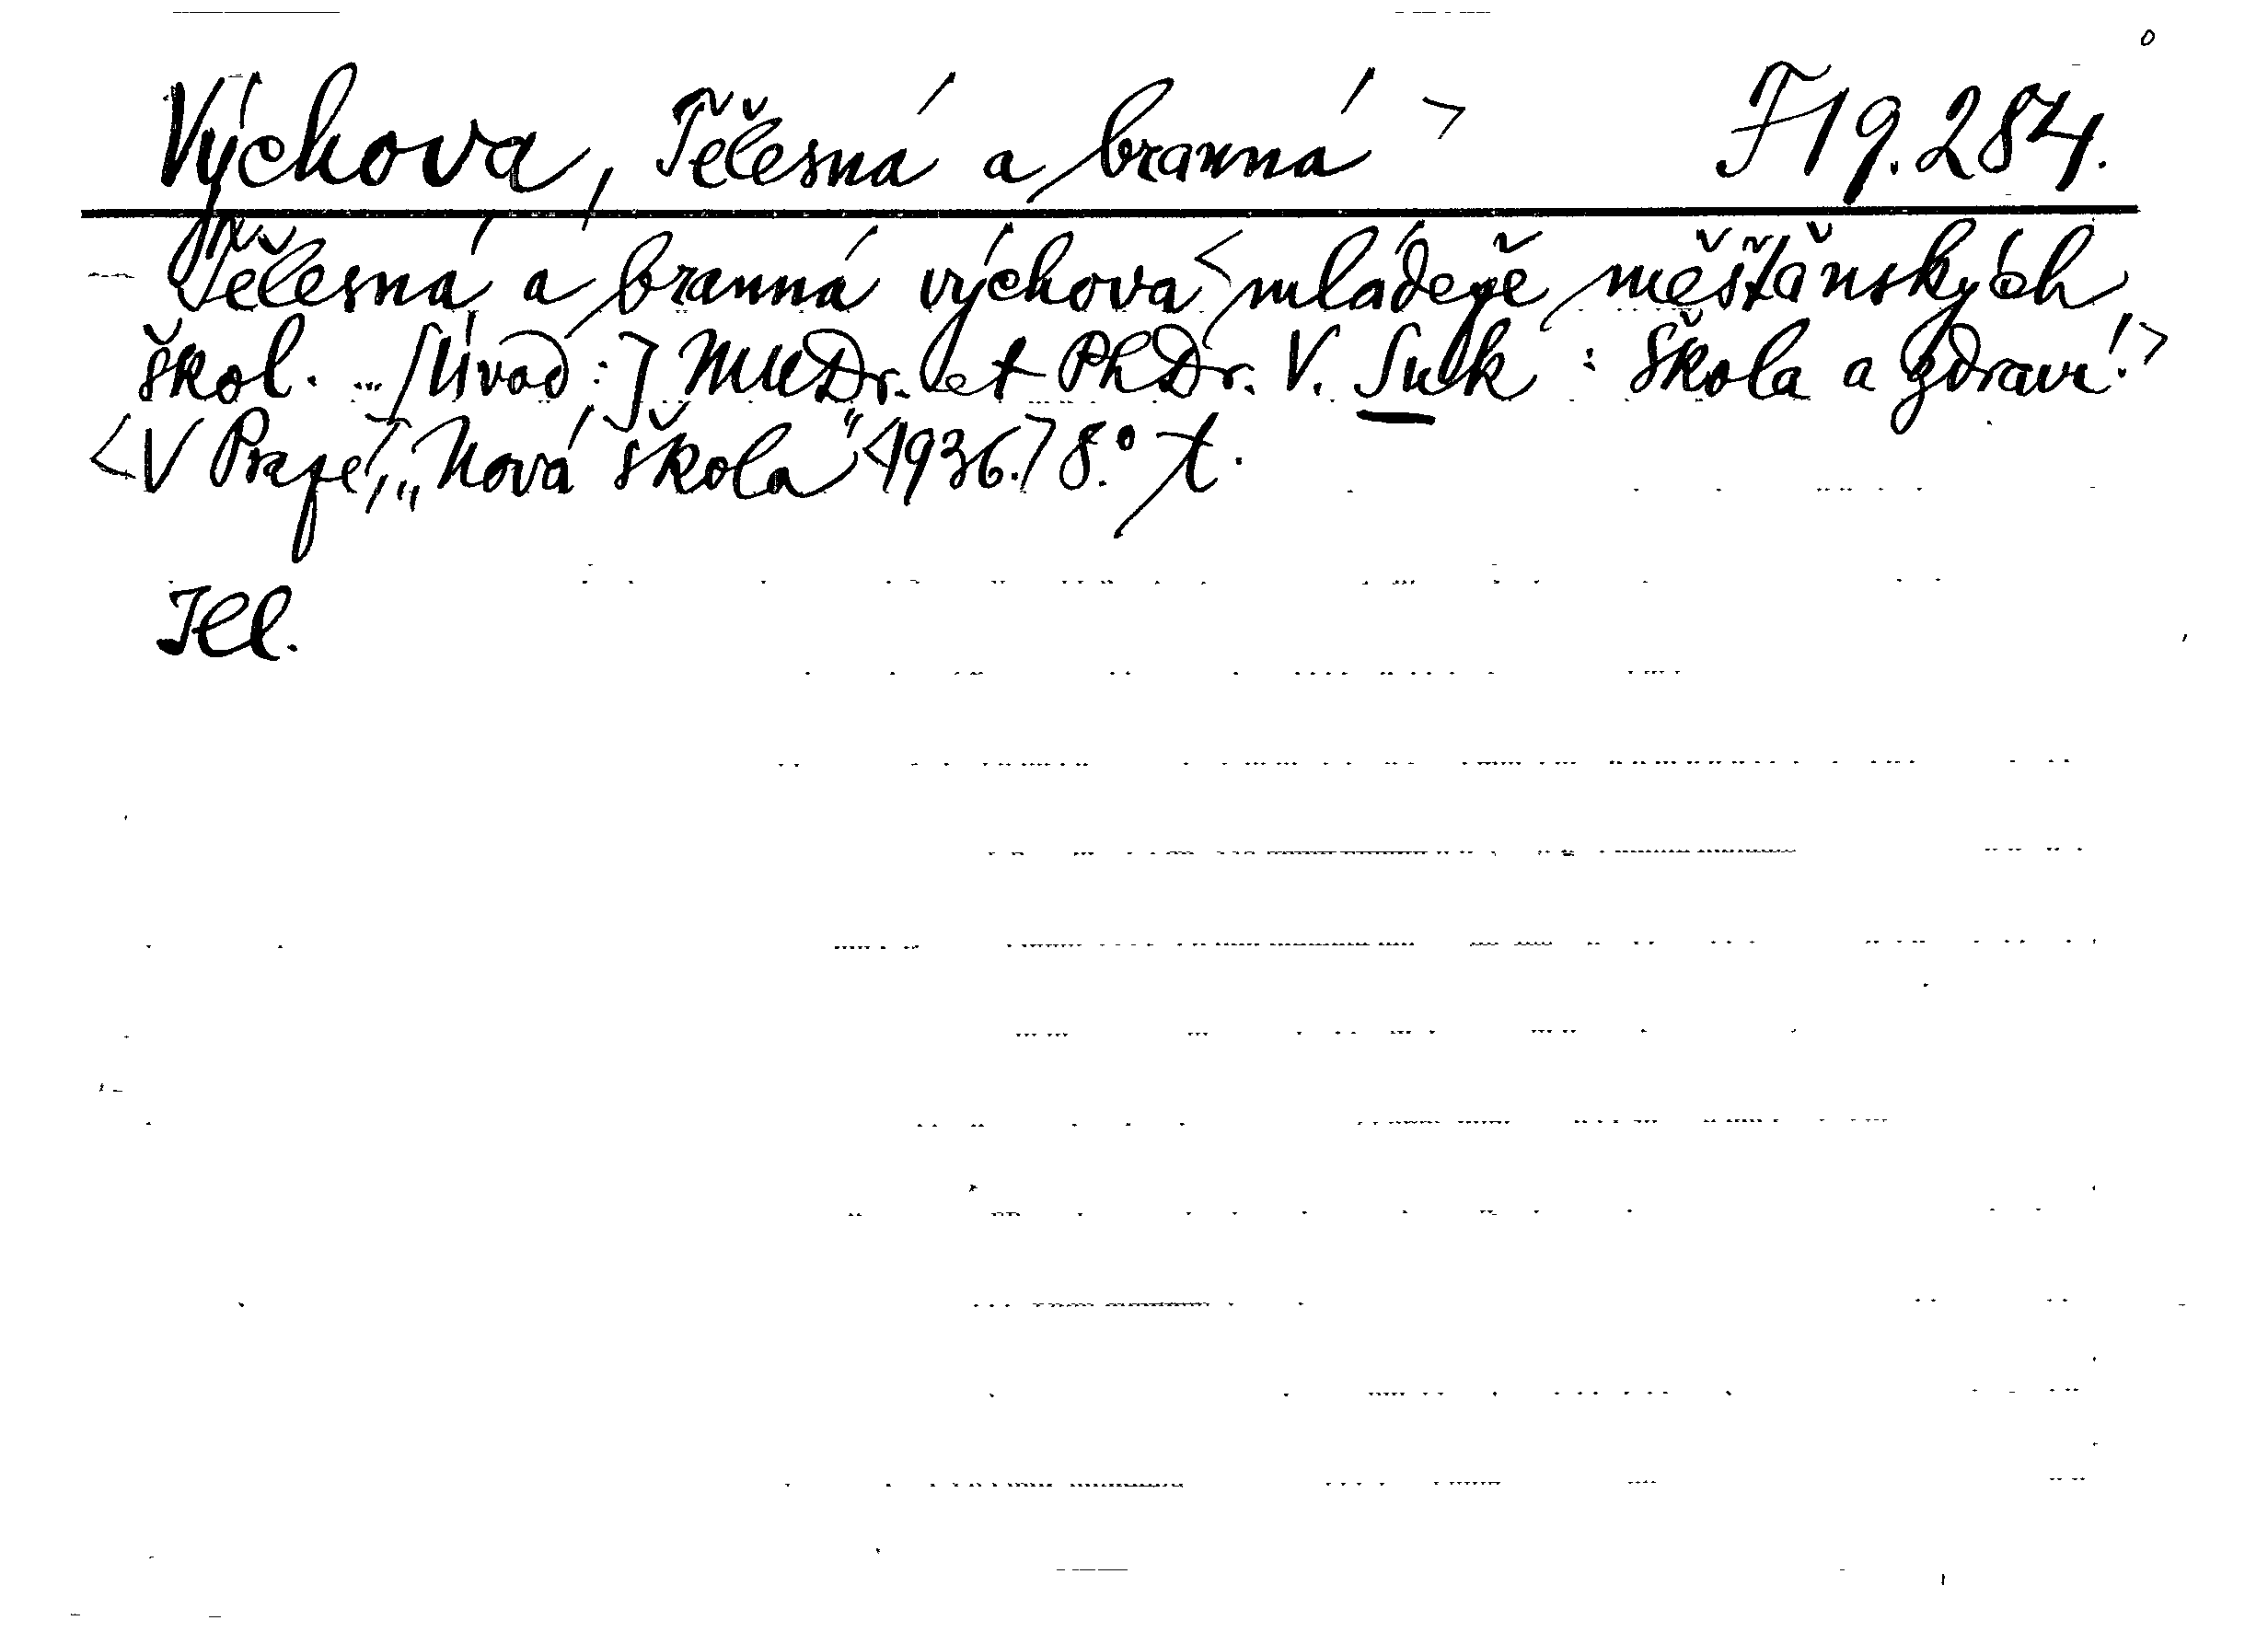 Výchova, Tělesná a branná> F 19.284.
Tělesná a branná výchova <mládeže měšťanských
škol. ... [Úvod:] MUDr. et PhDr. V. Suk: Škola a zdraví.>
<V Praze>, „Nová škola“ <1936.> 8.° t.
Ill.